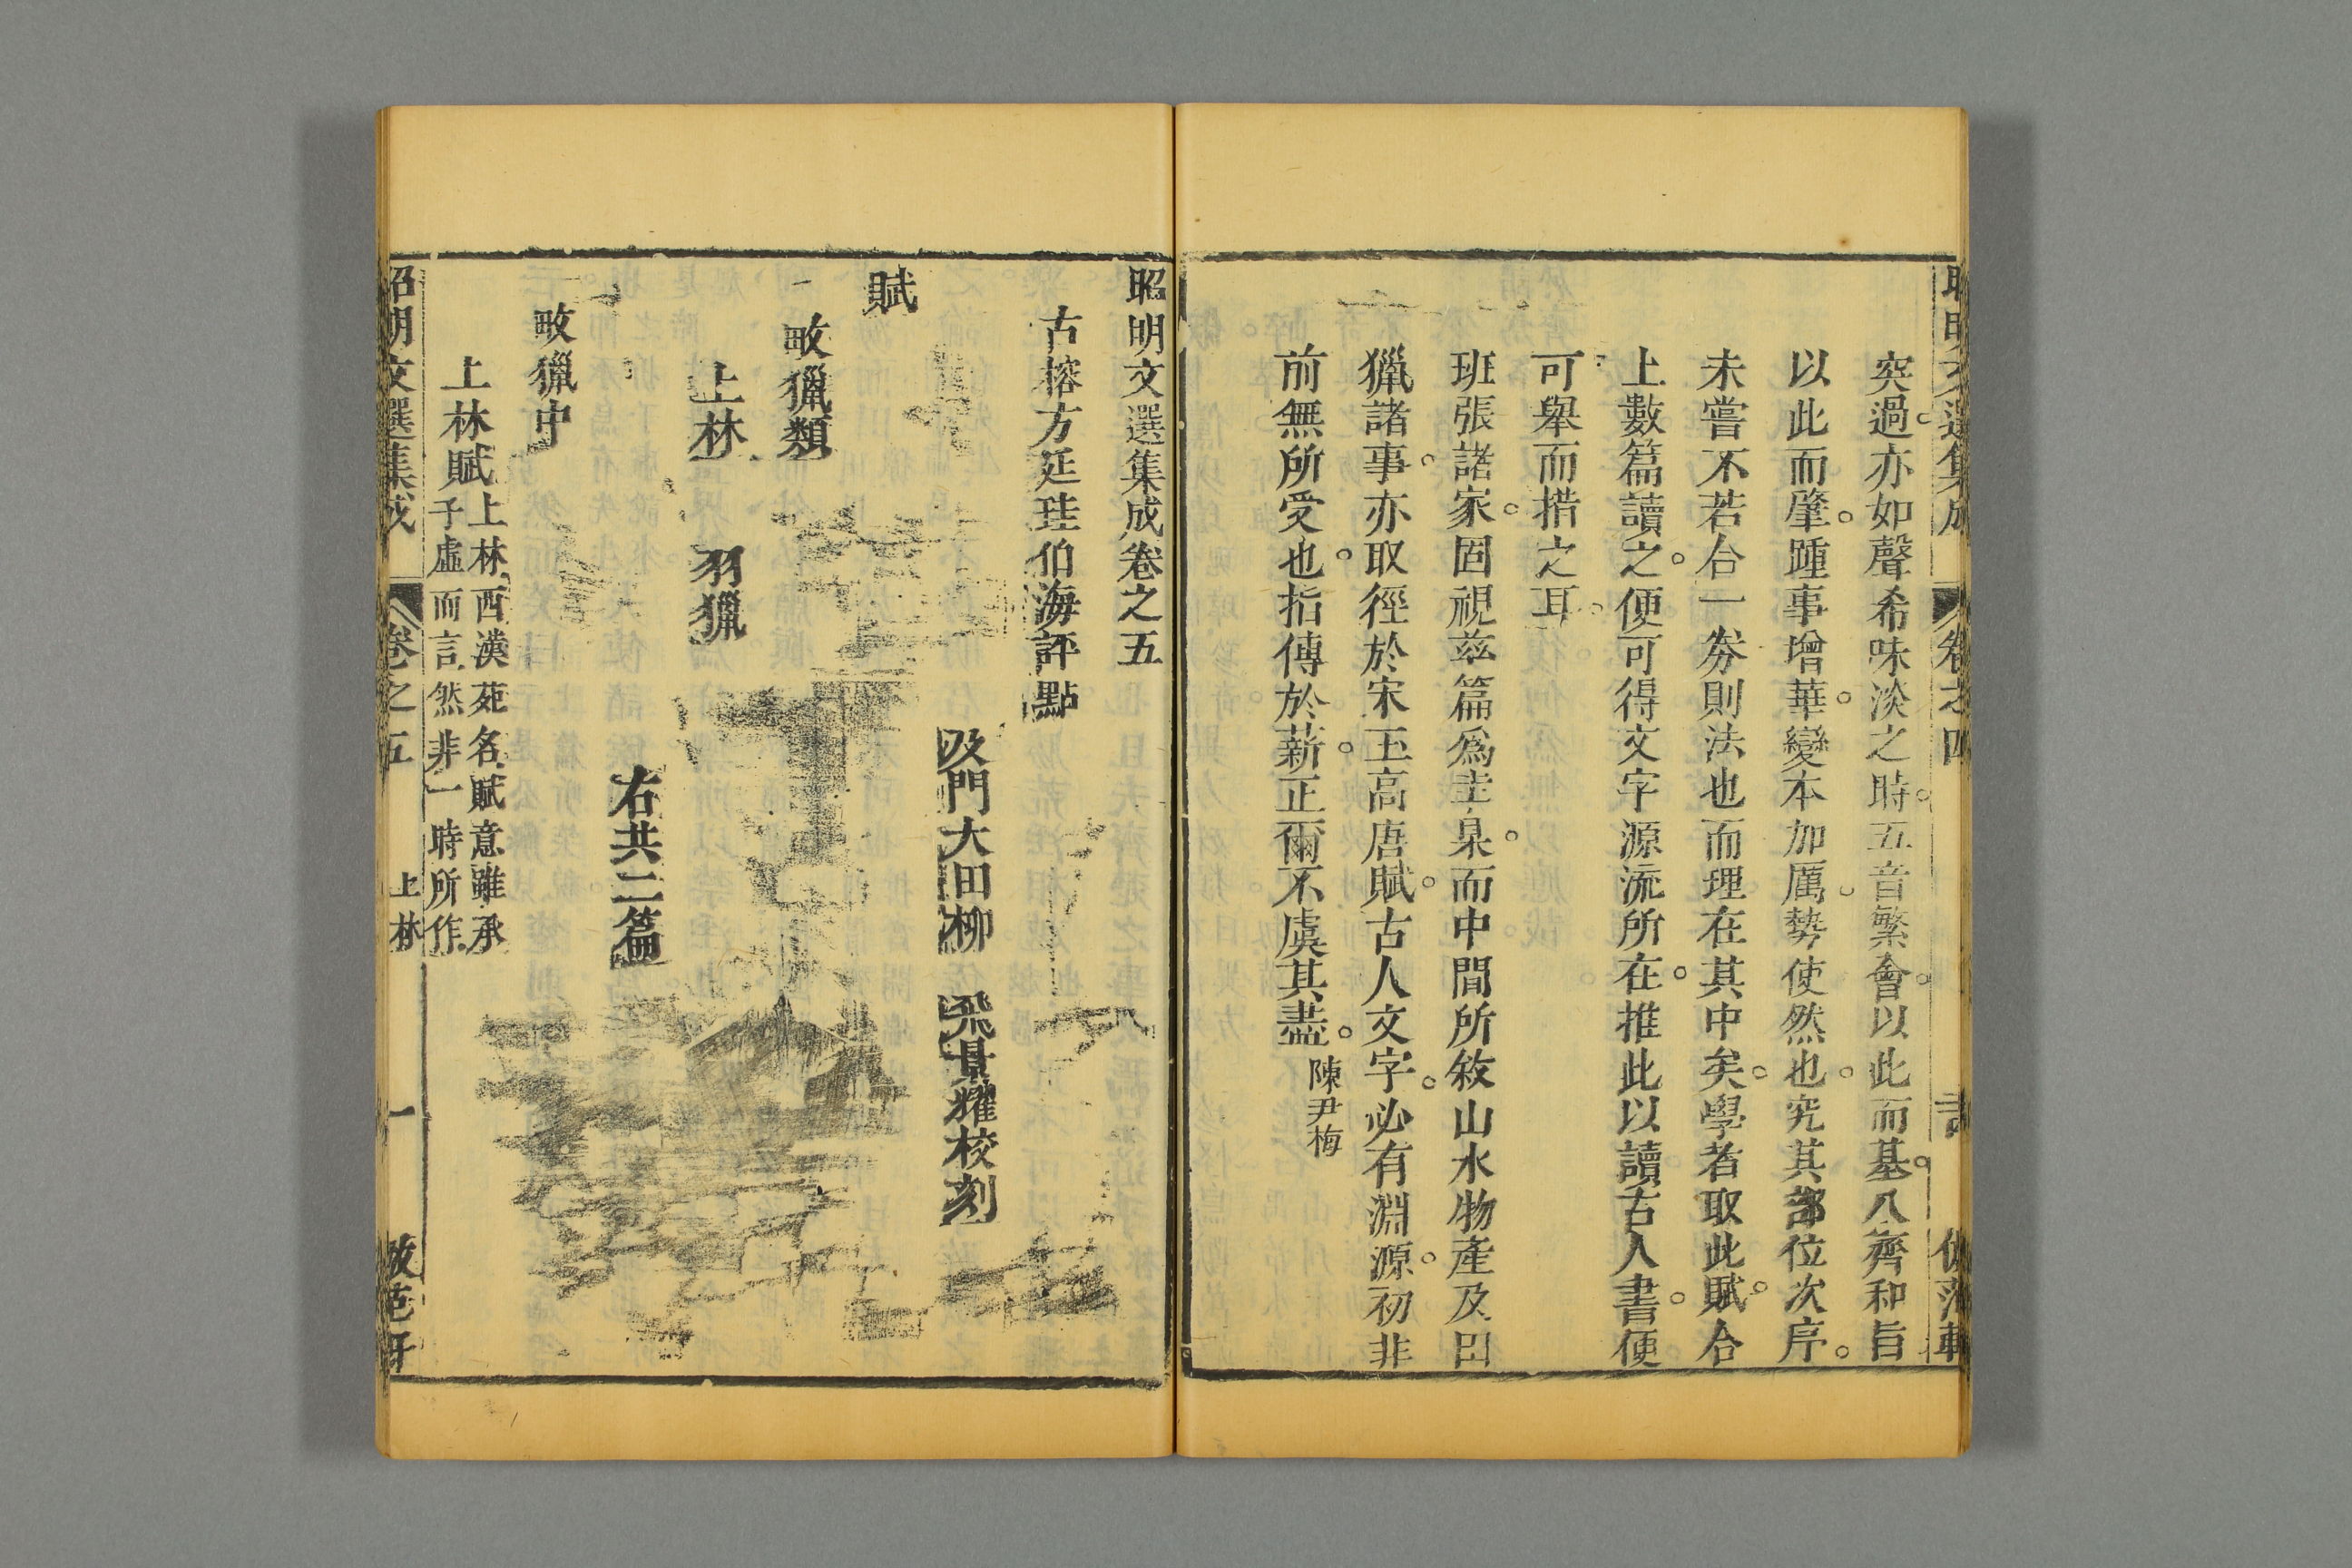 突過亦如聲希味淡之時五音繁會以此而基八齊和旨
以此而肇踵事增華變本加厲勢使然也究其部位次序
未嘗不若合一劵則法也而理在其中矣學者取此賦合
上數篇讀之便可得文字源流所在推此以讀古人書便
可舉而措之耳
班張諸家固視茲篇爲圭臬而中間所敘山水物產及田
獵諸事亦取徑於宋玉高唐賦古人文字必有淵源初非
前無所受也指傳於薪正爾不虞其盡 陳尹梅
昭明文選集成卷之五
古榕方廷珪伯海評點
及門大田柳 飛景耀校刻
賦
畋獵類
上林 羽獵
右共二篇
畋獵中
上林賦 上林西漢苑名賦意雖承
子虛而言然非一時所作
昭明文選集成 卷之五 上林 一